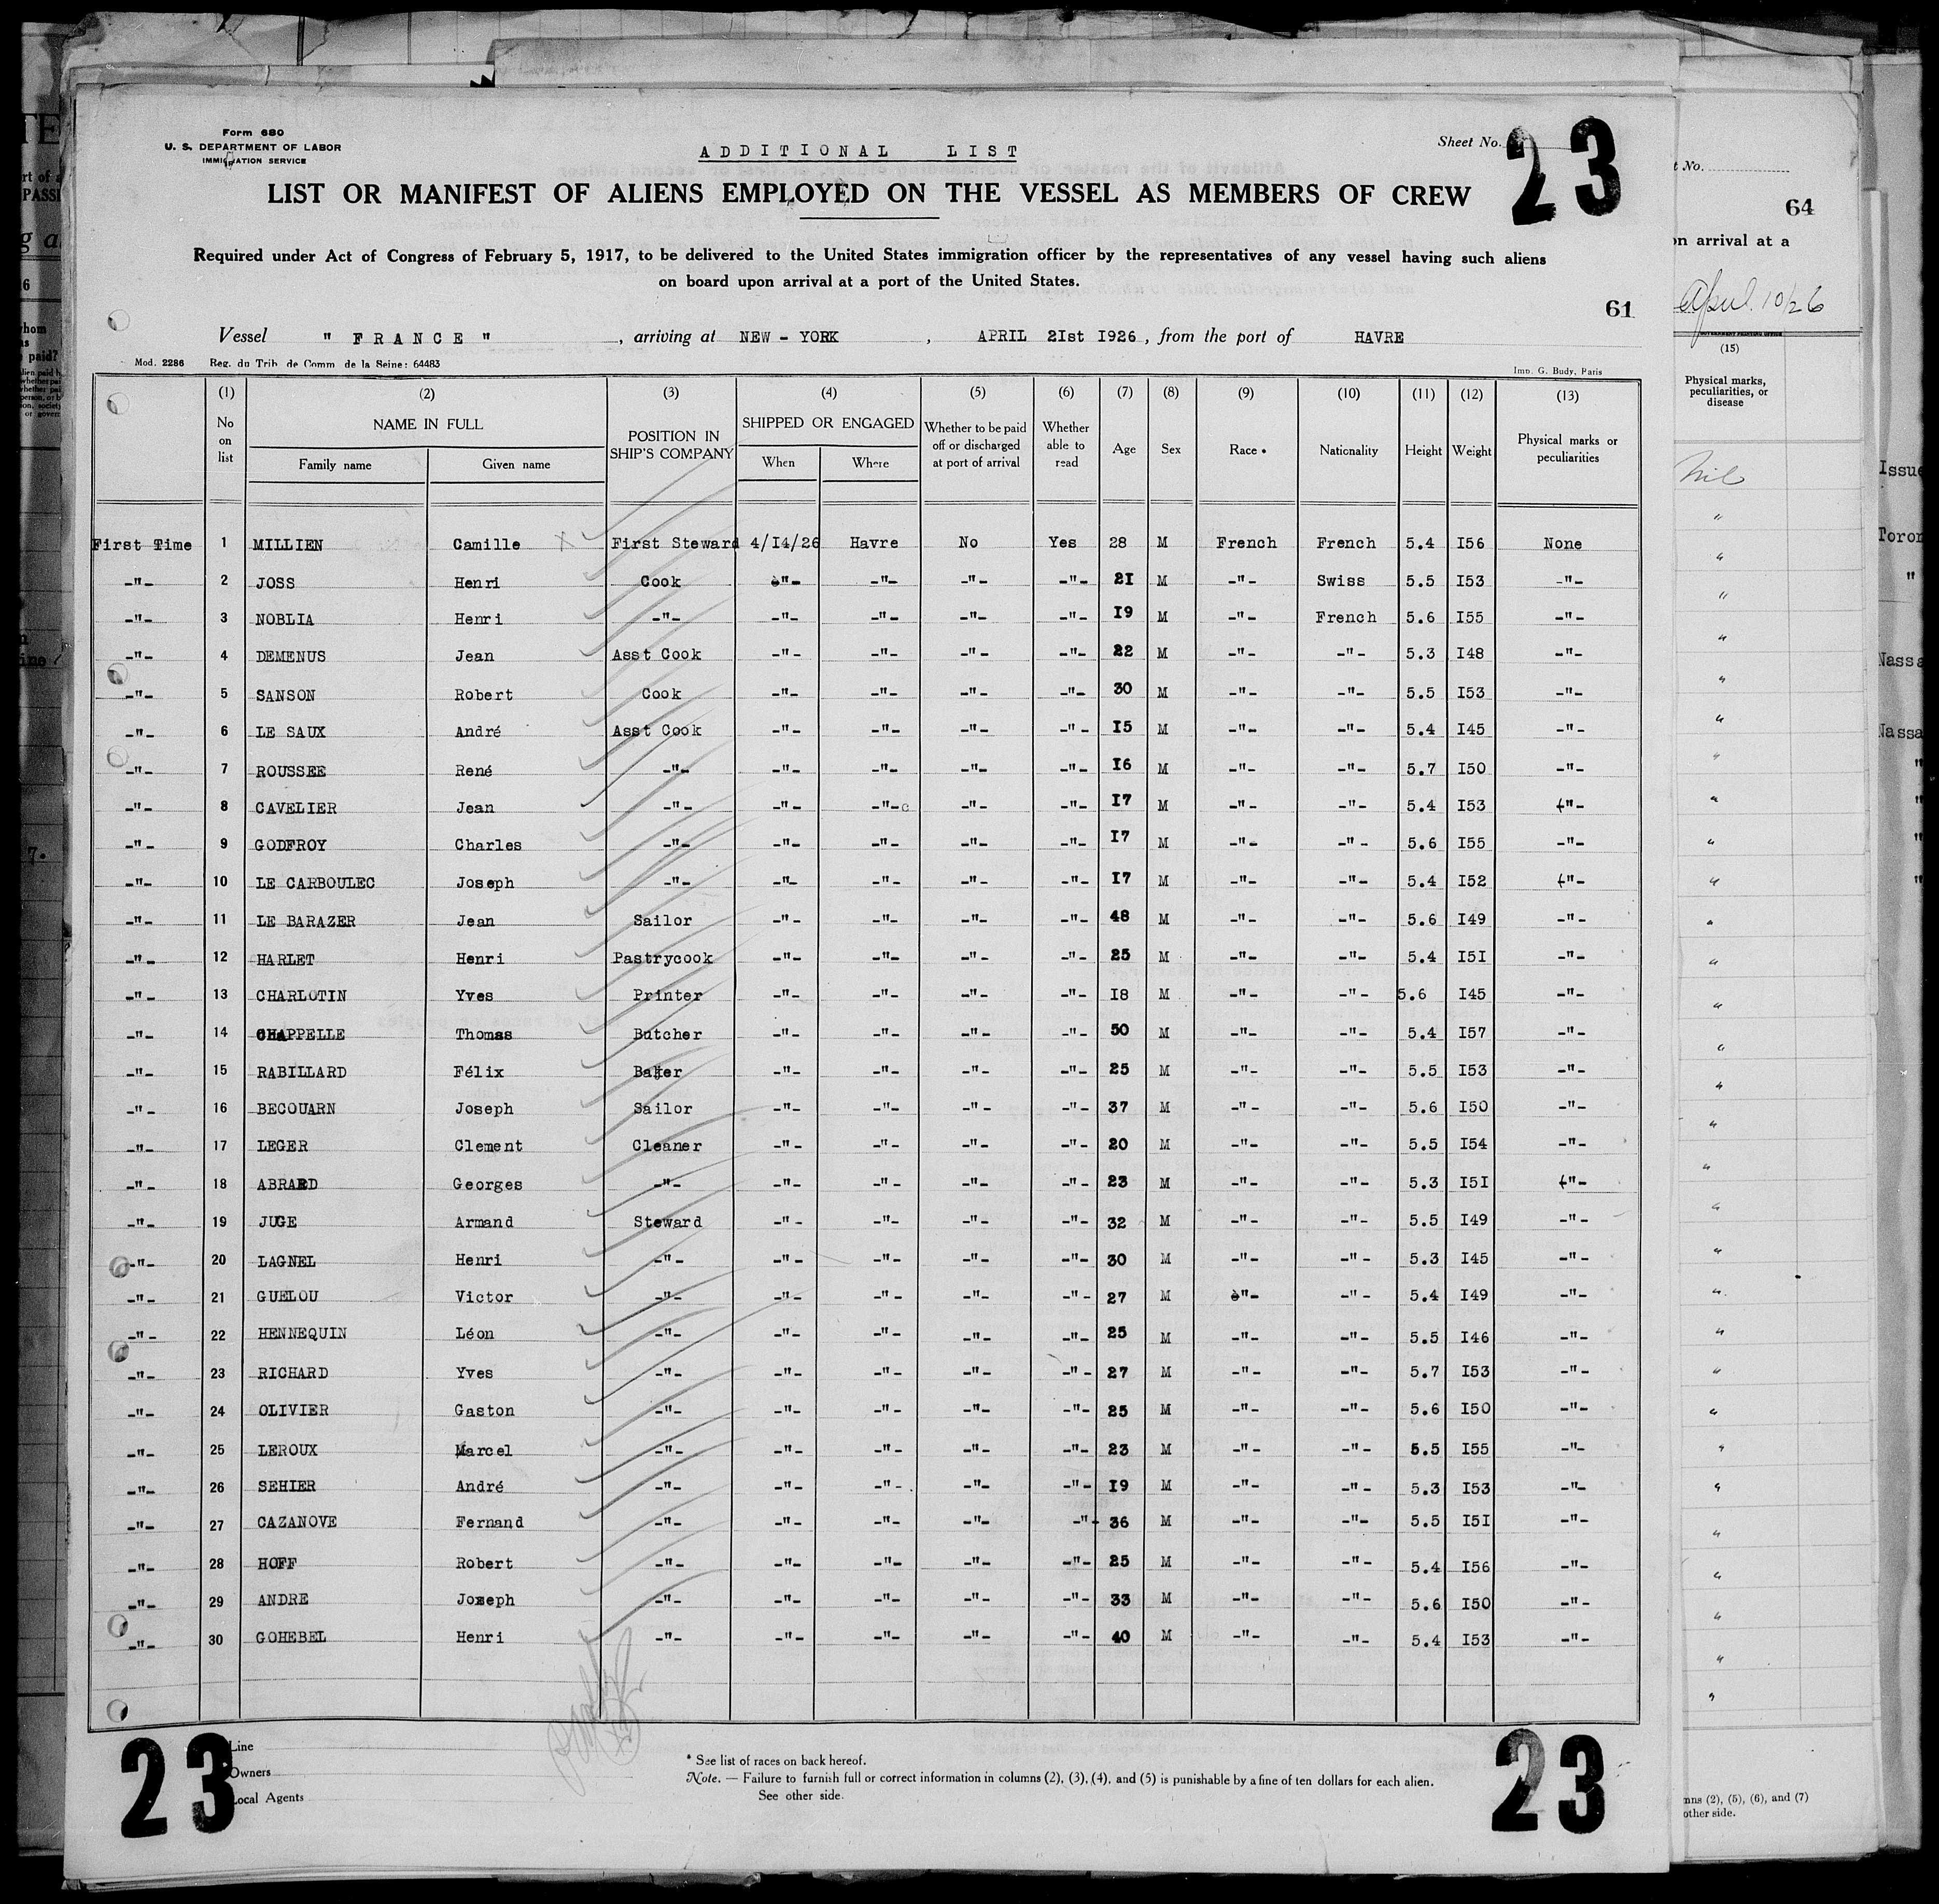 Form 680
U. S. DEPARTMENT OF LABOR
IMMIGRATION SERVICE
ADDITIONAL LIST
Sheet No. 23
LIST OR MANIFEST OF ALIENS EMPLOYED ON THE VESSEL AS MEMBERS OF CREW
Required under Act of Congress of February 5, 1917, to be delivered to the United States immigration officer by the representatives of any vessel having such aliens
on board upon arrival at a port of the United States.
61
Vessel " FRANCE " , arriving at NEW - YORK , APRIL 21st I926 , from the port of HAVRE
Mod. 2286 Reg. du Trib. de Comm. de la Seine: 64483 Imp. G. Budy, Paris
(1) (2) (3) (4) (5) (6) (7) (8) (9) (10) (11) (12) (13)
No on list NAME IN FULL Family name Given name POSITION IN SHIP'S COMPANY SHIPPED OR ENGAGED When Where Whether to be paid off or discharged at port of arrival Whether able to read Age Sex Race * Nationality Height Weight Physical marks or peculiarities
First Time 1 MILLIEN Camille X First Steward 4/I4/26 Havre No Yes 28 M French French 5.4 I56 None
-"- 2 JOSS Henri Cook -"- -"- -"- -"- 2I M -"- Swiss 5.5 I53 -"-
-"- 3 NOBLIA Henri -"- -"- -"- -"- -"- I9 M -"- French 5.6 I55 -"-
-"- 4 DEMENUS Jean Asst Cook -"- -"- -"- -"- 22 M -"- -"- 5.3 I48 -"-
-"- 5 SANSON Robert Cook -"- -"- -"- -"- 30 M -"- -"- 5.5 I53 -"-
-"- 6 LE SAUX André Asst Cook -"- -"- -"- -"- I5 M -"- -"- 5.4 I45 -"-
-"- 7 ROUSSEE René -"- -"- -"- -"- -"- I6 M -"- -"- 5.7 I50 -"-
-"- 8 CAVELIER Jean -"- -"- -"- -"- -"- I7 M -"- -"- 5.4 I53 -"-
-"- 9 GODFROY Charles -"- -"- -"- -"- -"- I7 M -"- -"- 5.6 I55 -"-
-"- 10 LE CARBOULEC Joseph -"- -"- -"- -"- -"- I7 M -"- -"- 5.4 I52 -"-
-"- 11 LE BARAZER Jean Sailor -"- -"- -"- -"- 48 M -"- -"- 5.6 I49 -"-
-"- 12 HARLET Henri Pastrycook -"- -"- -"- -"- 25 M -"- -"- 5.4 I5I -"-
-"- 13 CHARLOTIN Yves Printer -"- -"- -"- -"- I8 M -"- -"- 5.6 I45 -"-
-"- 14 CHAPPELLE Thomas Butcher -"- -"- -"- -"- 50 M -"- -"- 5.4 I57 -"-
-"- 15 RABILLARD Félix Baker -"- -"- -"- -"- 25 M -"- -"- 5.5 I53 -"-
-"- 16 BECOUARN Joseph Sailor -"- -"- -"- -"- 37 M -"- -"- 5.6 I50 -"-
-"- 17 LEGER Clement Cleaner -"- -"- -"- -"- 20 M -"- -"- 5.5 I54 -"-
-"- 18 ABRARD Georges -"- -"- -"- -"- -"- 23 M -"- -"- 5.3 I5I -"-
-"- 19 JUGE Armand Steward -"- -"- -"- -"- 32 M -"- -"- 5.5 I49 -"-
-"- 20 LAGNEL Henri -"- -"- -"- -"- -"- 30 M -"- -"- 5.3 I45 -"-
-"- 21 GUELOU Victor -"- -"- -"- -"- -"- 27 M -"- -"- 5.4 I49 -"-
-"- 22 HENNEQUIN Léon -"- -"- -"- -"- -"- 25 M -"- -"- 5.5 I46 -"-
-"- 23 RICHARD Yves -"- -"- -"- -"- -"- 27 M -"- -"- 5.7 I53 -"-
-"- 24 OLIVIER Gaston -"- -"- -"- -"- -"- 25 M -"- -"- 5.6 I50 -"-
-"- 25 LEROUX Marcel -"- -"- -"- -"- -"- 23 M -"- -"- 5.5 I55 -"-
-"- 26 SEHIER André -"- -"- -"- -"- -"- I9 M -"- -"- 5.3 I53 -"-
-"- 27 CAZANOVE Fernand -"- -"- -"- -"- -"- 36 M -"- -"- 5.5 I5I -"-
-"- 28 HOFF Robert -"- -"- -"- -"- -"- 25 M -"- -"- 5.4 I56 -"-
-"- 29 ANDRE Joseph -"- -"- -"- -"- -"- 33 M -"- -"- 5.6 I50 -"-
-"- 30 GOHEBEL Henri -"- -"- -"- -"- -"- 40 M -"- -"- 5.4 I53 -"-
23
23
Line
Owners
Local Agents
* See list of races on back hereof.
Note. — Failure to furnish full or correct information in columns (2), (3), (4), and (5) is punishable by a fine of ten dollars for each alien.
See other side.
No.
64
on arrival at a
April 10/26
(15)
Physical marks,
peculiarities, or
disease
Nil
(2), (5), (6), and (7)
other side.
Issue
Nassa